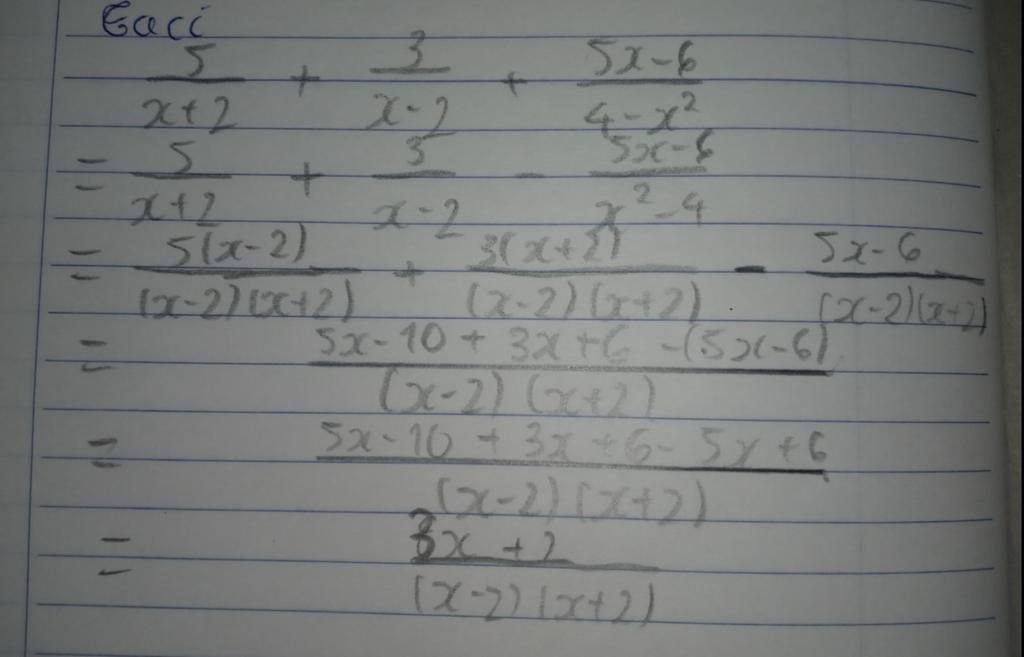 Gaci
5/(x+2) + 3/(x-2) + (5x-6)/(4-x²)
= 5/(x+2) + 3/(x-2) - (5x-6)/(x²-4)
= 5(x-2)/((x-2)(x+2)) + 3(x+2)/((x-2)(x+2)) - (5x-6)/((x-2)(x+2))
= (5x-10 + 3x+6 -(5x-6))/((x-2)(x+2))
= (5x-10 + 3x+6- 5x+6)/((x-2)(x+2))
= (3x+2)/((x-2)(x+2))